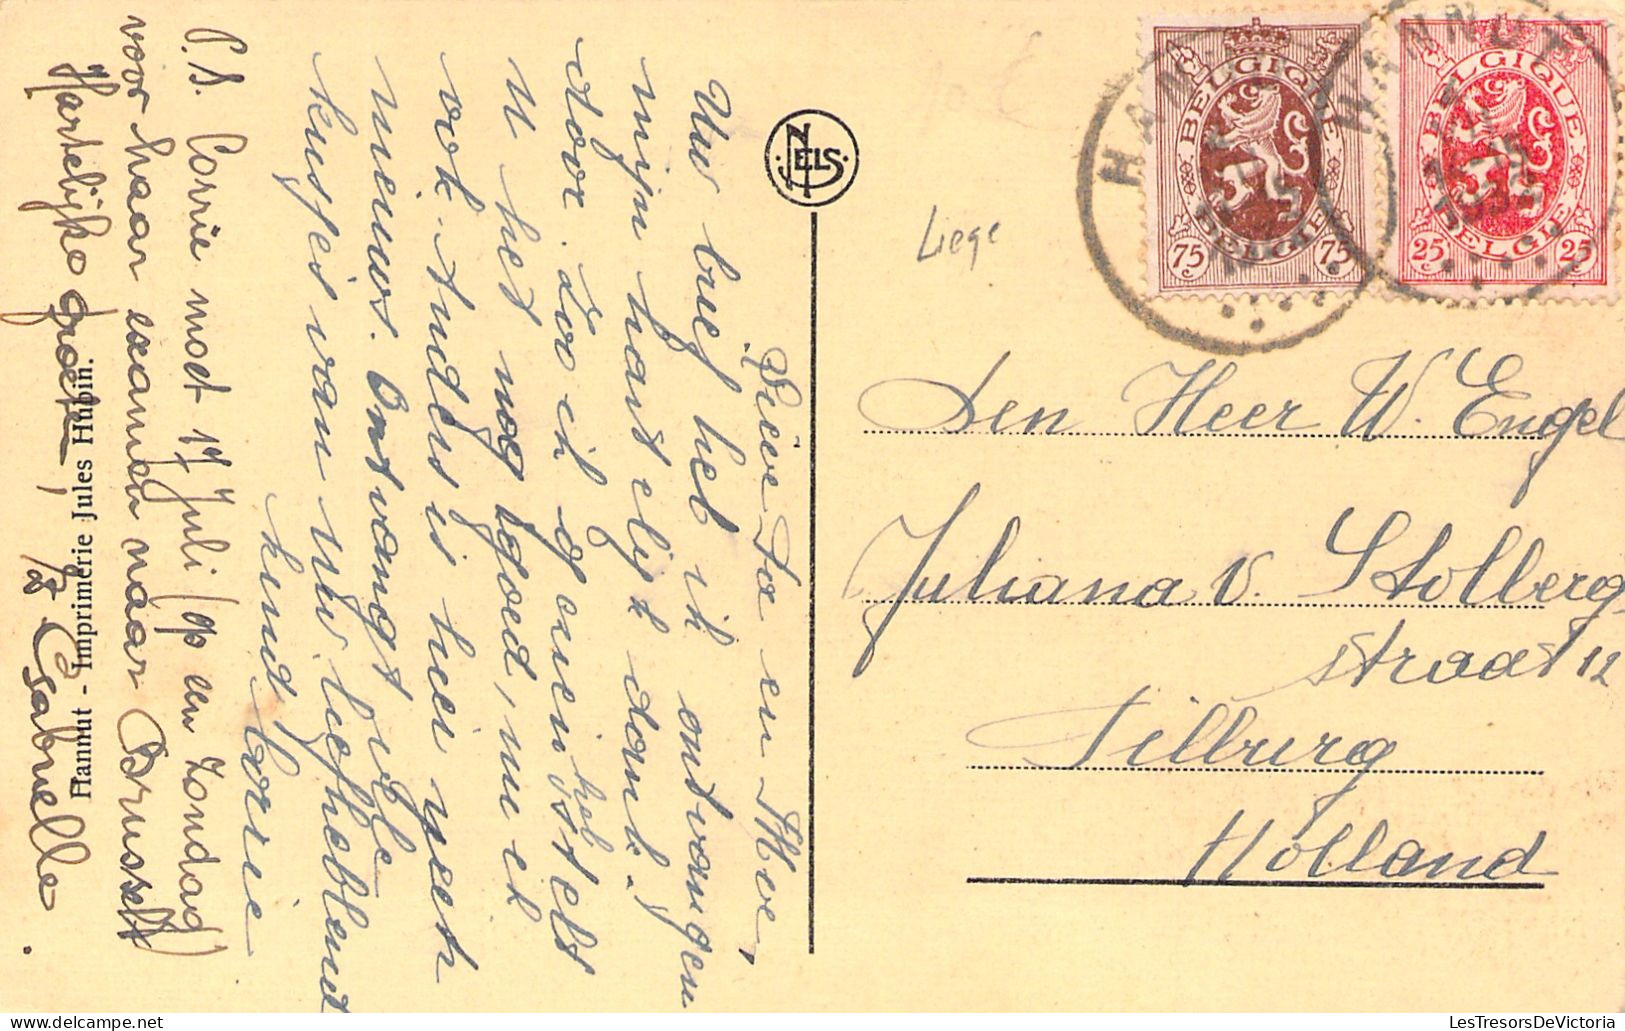 Lieve Pa en Moe,
Uw brief heb ik ontvangen
mijn hartelijk dank
door. Zoo ik op eens heb
U het nog goed, nu ik
ook. Anders is hier geen
nieuws. Ontvangt vele
kusjes van uw liefhebbend
kind Corrie
P.S. Corrie moet 17 Juli (op een Zondag)
voor haar examen naar Brussel
Hartelijke groeten, Gabrielle.
Hannut - Imprimerie Jules Hubin.
NELS
Liege
HANNUT
BELGIQUE
BELGIE
75 75
HANNUT
BELGIQUE
BELGIE
25 25
Den Heer W. Engel
Juliana v. Stolberg
straat 12
Tilburg
Holland
LesTresorsDeVictoria.com